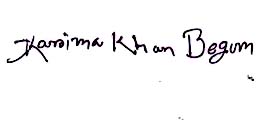 Karima Khan Begum